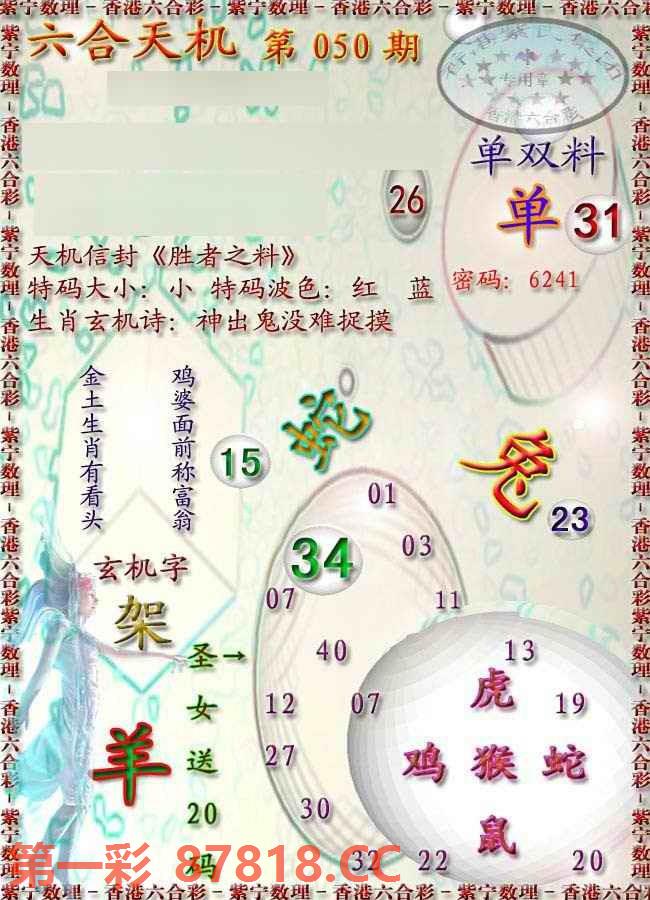 紫宁数理－香港六合彩－紫宁数理－香港六合彩－紫宁数理－香港六合彩
六合天机 第 050 期
专用章
香港六合彩
单双料
26
单 31
天机信封《胜者之料》
特码大小：小 特码波色：红 蓝
密码：6241
生肖玄机诗：神出鬼没难捉摸
金土生肖有看头
鸡婆面前称富翁
蛇
15
兔
23
01
34
03
玄机字
07
11
架
圣→
40
13
女
12
07
虎
19
羊
送
27
鸡 猴 蛇
20
30
鼠
码
32
22
20
第一彩 87818.CC
紫宁数理－香港六合彩－紫宁数理－香港六合彩－紫宁数理－香港六合彩